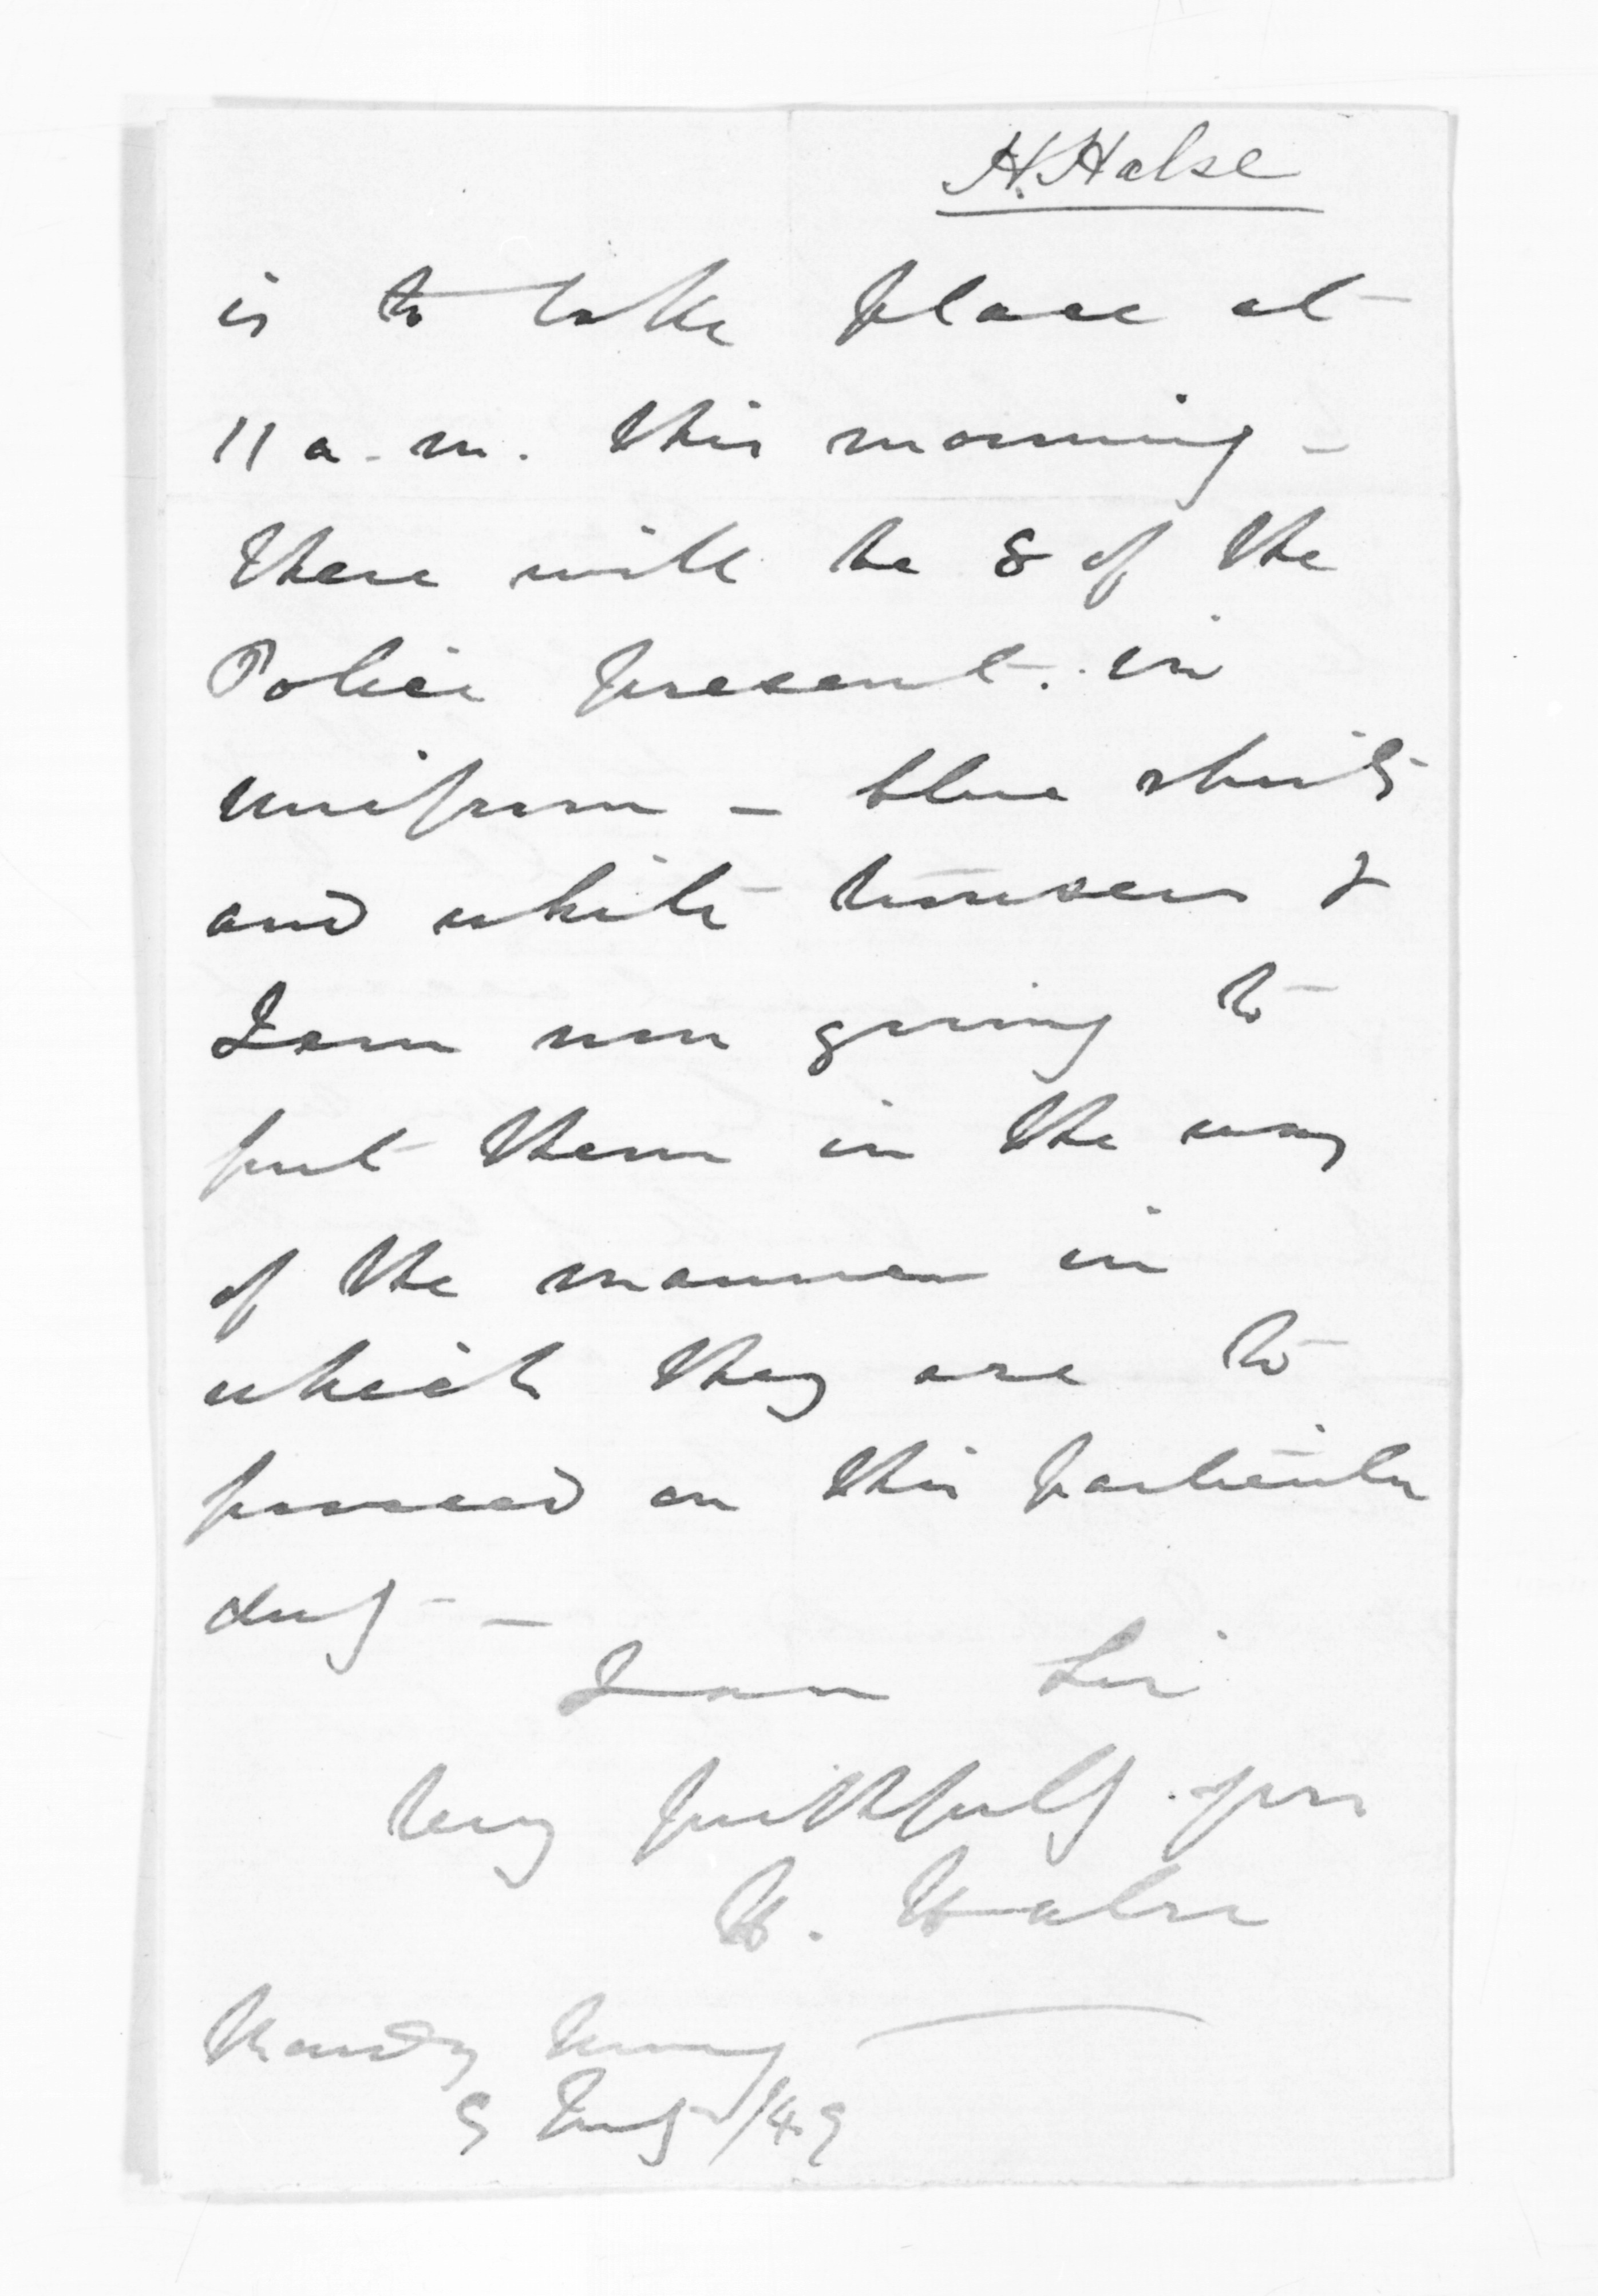 H. Halse
is to take place at
11 a.m. this morning -
there will be 8 of the
Police present in
uniform - blue shirts
and white trousers &
I am now going to
put them in the way
of the manner in
which they are to
proceed on this particular
duty -
I am Sir
Very faithfully yrs
H. Halse
Monday Morng
9 July /49